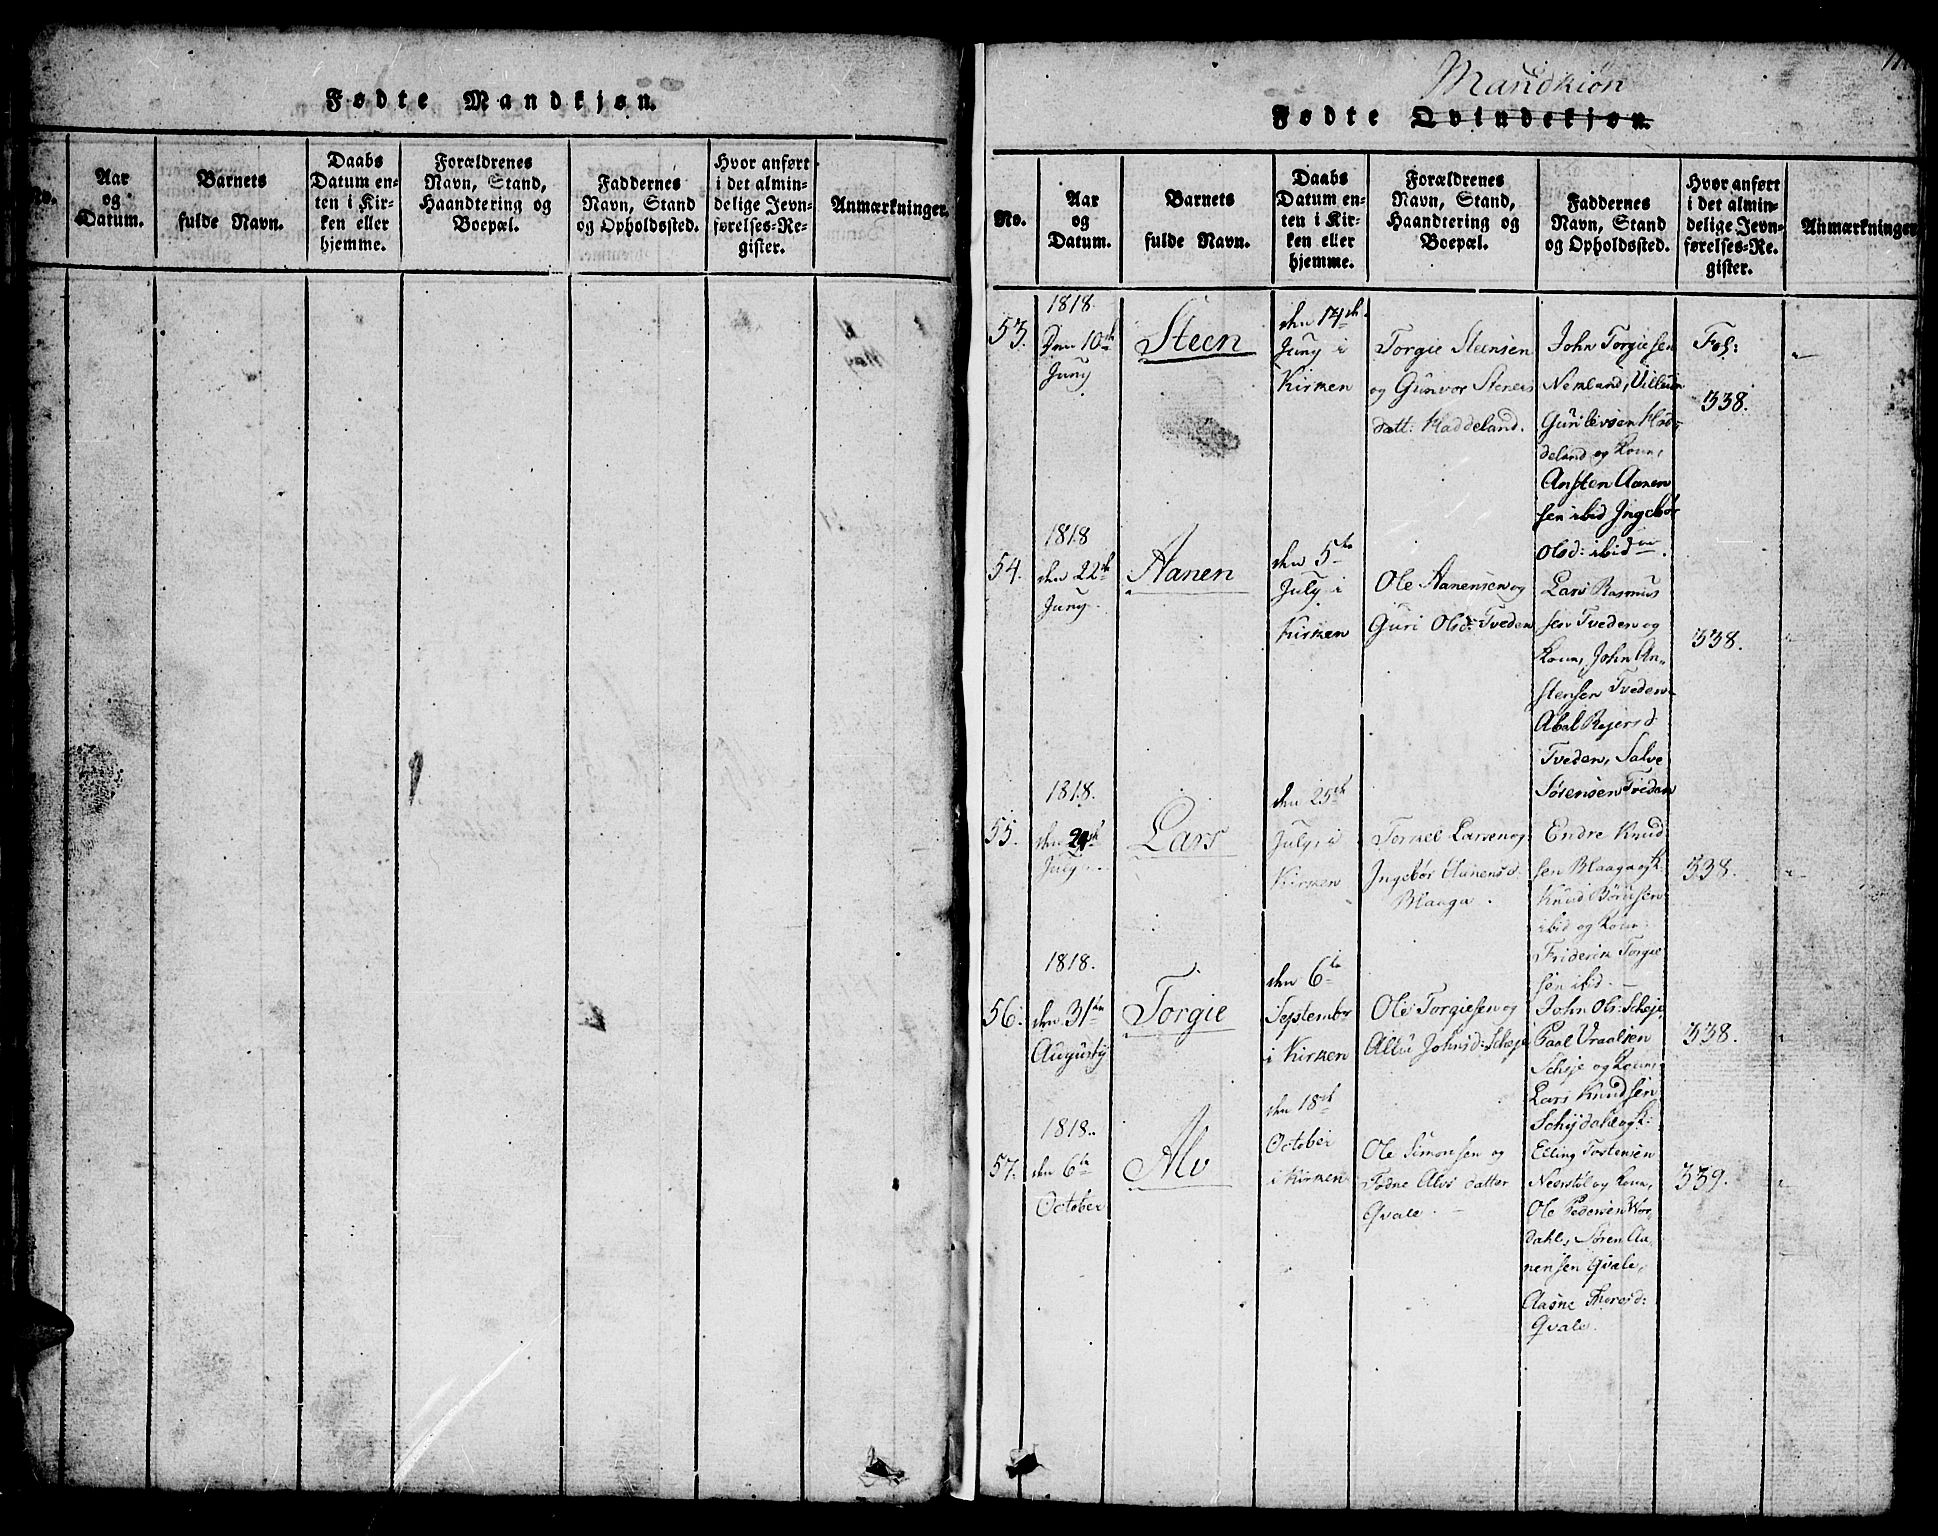 Fødte Mandkjøn.
No.
Aar
og
Datum.
Barnets
fulde Navn.
Daabs
Datum en-
ten i Kir-
ken eller
hjemme.
Forældrenes
Navn, Stand,
Haandtering og
Boepæl.
Faddernes
Navn, Stand
og Opholdssted.
Hvor anført
i det almin-
delige Jevn-
førelses-Re-
gister.
Anmærkninger.
Mandkiön
Fødte Qvindekjøn.
No.
Aar
og
Datum.
Barnets
fulde Navn.
Daabs
Datum en-
ten i Kir-
ken eller
hjemme.
Forældrenes
Navn, Stand,
Haandtering og
Boepæl.
Faddernes
Navn, Stand
og Opholdssted.
Hvor anført
i det almin-
delige Jevn-
førelses-Re-
gister.
Anmærkninger
53.
1818
Den 10de
Juny
Steen
den 14de
Juny i
Kirken
Torgie Steensen
og Gunvor Steners
datt: Haddeland.
John Torgiesen
Nemland, Villum
Gunlevsen Had-
deland og Kone,
Ansten Aanen
sen ibid Ingebor
Olsd: ibid
Fol:
338.
54.
1818
den 22de
Juny.
Aanen
den 5te
July i
Kirken
Ole Aanensen og
Guri Olsd: Tveden
Lars Rasmus
sen Tveden og
Kone, John An-
stensen Tveden
Abel Rejersd
Tveden, Salve
Sörensen Tveden
338.
55.
1818.
den
July
Lars
den 25de
July i
Kirken
Torkel Larsen og
Ingebor Aanensd.
Blaaga.
Endre Knud
sen Blaaga og K.
Knud
ibid og Kone
Friderik Torgie
sen ibid.
338.
56.
1818.
den 31te
Augusty
Torgie
den 6te
September
i Kirken
Ole Torgiesen og
Johnsd: Scheje
John Ols: Scheje,
Paal Vraalsen
Scheje og Kone,
Lars Knudsen
og K:
338.
57.
1818.
den 6te
October
Alv
den 18de
October
i Kirken
Ole Simonsen og
Todne Alvs datter
Qvale.
Elling Tostensen
og Kone,
Ole Pedersen
dahl, Sören Aa-
nensen Qvale,
Aasne Thorsd:
Qvale.
339.